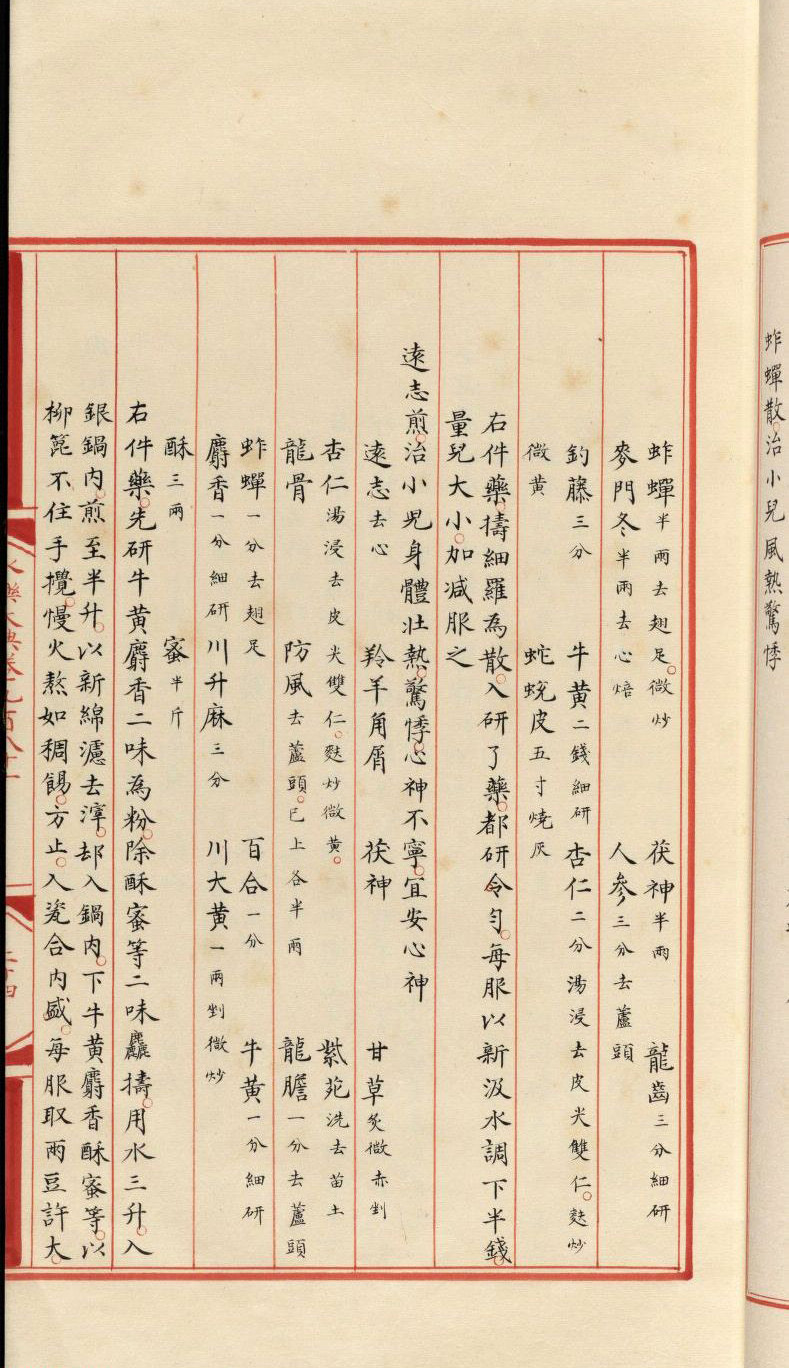 蚱蟬散。治小兒風熱驚悸
蚱蟬半兩去翅足。微炒 茯神半兩 龍齒三分細研
麥門冬半兩去心焙 人參三分去蘆頭
釣藤三分 牛黃二錢細研 杏仁二分湯浸去皮尖雙仁。麩炒
微黃 蛇蛻皮五寸燒灰
右件藥。擣細羅為散。入研了藥。都研令勻。每服以新汲水調下半錢。
量兒大小。加減服之
遠志煎。治小兒身體壯熱。驚悸。心神不寧。宜安心神
遠志去心 羚羊角屑 茯神 甘草炙微赤剉
杏仁湯浸去皮尖雙仁。麩炒微黃。 紫菀洗去苗土
龍骨 防風去蘆頭。已上各半兩 龍膽一分去蘆頭
蚱蟬一分去翅足 百合一分 牛黃一分細研
麝香一分細研 川升麻三分 川大黃一兩剉微炒
酥三兩 蜜半斤
右件藥。先研牛黃麝香二味為粉。除酥蜜等二味麤擣。用水三升。入
銀鍋內。煎至半升。以新綿濾去滓。却入鍋內。下牛黃麝香酥蜜等。以
柳箆不住手攪。慢火熬如稠餳。方止。入瓷合內盛。每服取兩豆許大。
永樂大典卷九百八十一
二十四